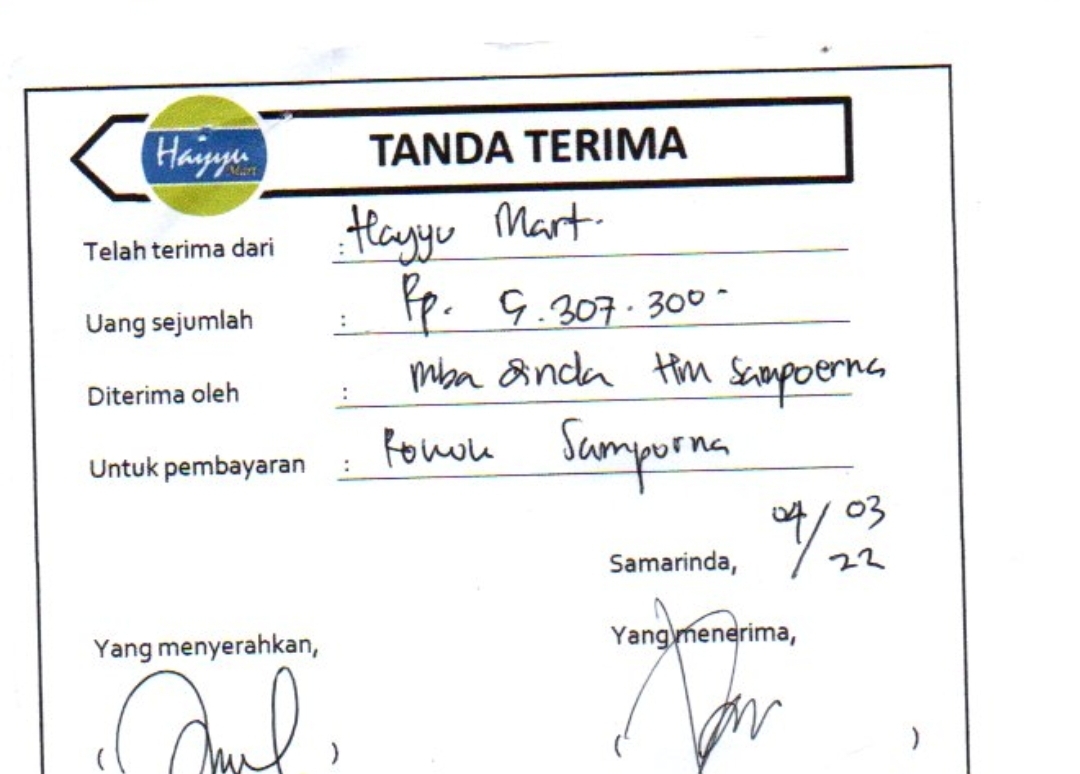 Hayyu
Mart
TANDA TERIMA
Telah terima dari : Hayyu Mart.
Uang sejumlah : Rp. 9.307.300-
Diterima oleh : mba dinda tim Sampoerna
Untuk pembayaran : Rokok Samporna
Samarinda, 04/03/22
Yang menyerahkan, Yang menerima,
( ) ( )